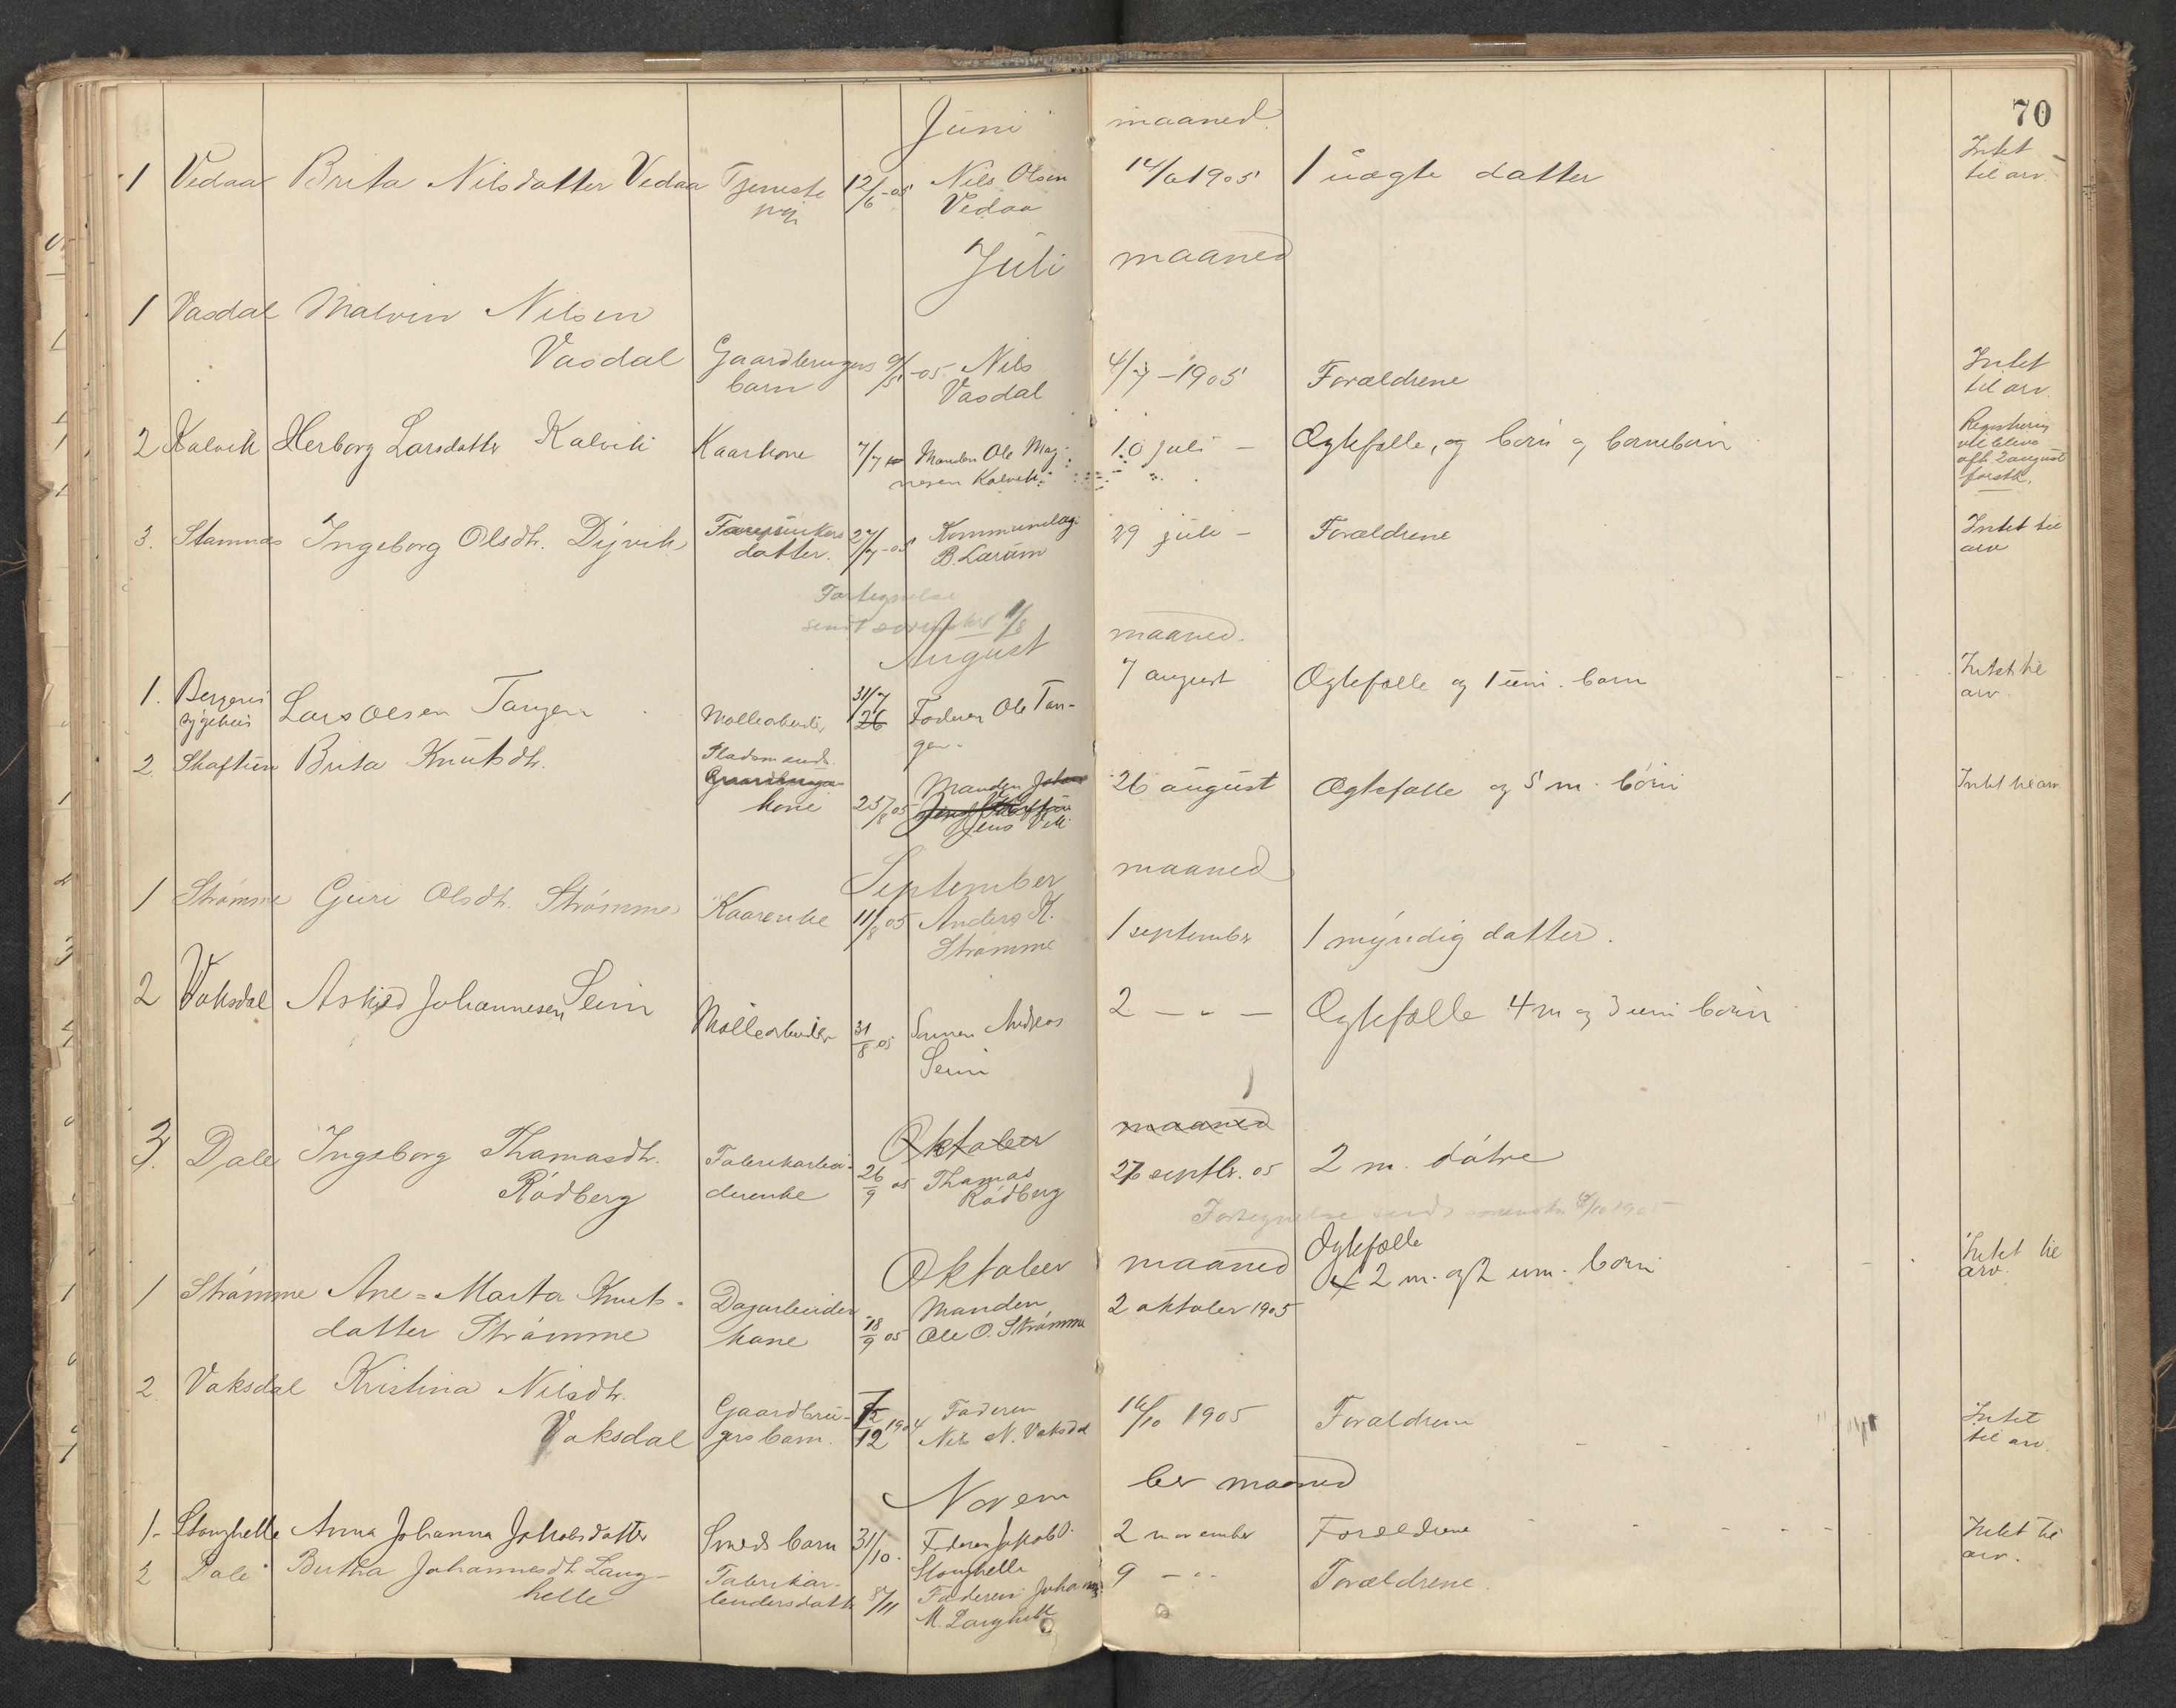 70
Juni maaned
1 Vedaa Brita Nilsdatter Vedaa Tjeneste 12/6-05 Nils Olsen 14/6 1905 1 uægte datter Intet
pige Vedaa til arv.
Juli maaned
1 Vasdal Malvin Nilsen
Vasdal Gaardbrugers 9/5-05 Nils 4/7-1905 Forældrene Intet
barn Vasdal til arv.
2 Kalvik Herborg Larsdatter Kalvik Kaarkone 7/7 Manden Ole Mag- 10 juli - Ægtefælle, og børn og børnebørn Registrering
nesen Kalvik vil blive
afh. 2 august
forstk.
3. Stamnes Ingeborg Olsdtr. Dyvik datter. 27/7-05 29 juli - Forældrene Intet til
B. Larum arv
Fortegnelse
sendt sorenskr 1/8
August maaned.
1. Bergens Lars Olsen Tangen Møllearbeider 31/7 Faderen Ole Tan- 7 august Ægtefælle og 1 um. barn Intet til
sygehus 26 gen. arv
2 Skaftun Brita Knutsdtr. Pladsmands
kone 25/8 05 Manden 26 august Ægtefælle og 5 m. børn Intet til arv
Jens
September maaned
1 Strømme Guri Olsdtr. Strømme Kaarenke 11/8 05 Anders K. 1 september 1 myndig datter.
Strømme
2 Vaksdal Askild Johannesen Seim Møllearbeider 31/8 05 Sønnen Andreas 2 - " - Ægtefælle 4 m og 3 um børn
Seim
Oktober maaned
3. Dale Ingeborg Thomasdtr. Fabrikarbei- 26/9 05 Thomas 27 septbr. 05 2 m. døtre
Rødberg derenke Rødberg
Fortegnelse sendt sorenskr 1905
Oktober maaned Ægtefælle
1 Strømme Ane=Marta Knuts- Dagarbeider 18/9 05 Manden 2 oktober 1905 2 m. og 2 um. børn Intet til
datter Strømme kone Ole O. Strømme arv.
2. Vaksdal Kristina Nilsdtr.
Vaksdal Gaardbru- 12 1904 Faderen 16/10 1905 Forældrene Intet
gers barn. Nils N. Vaksdal til arv.
Novem ber maaned
1- Stanghelle Anna Johanna Jakobsdatter Smeds barn 31/10. Faderen Jakob O. 2 november Forældrene Intet til
Stanghelle arv.
2 Dale Bertha Johannesdtr Lang- Fabrikar- 8/11 Faderen Johannes 9 - " Forældrene.
helle beidersdatter M. Langhelle